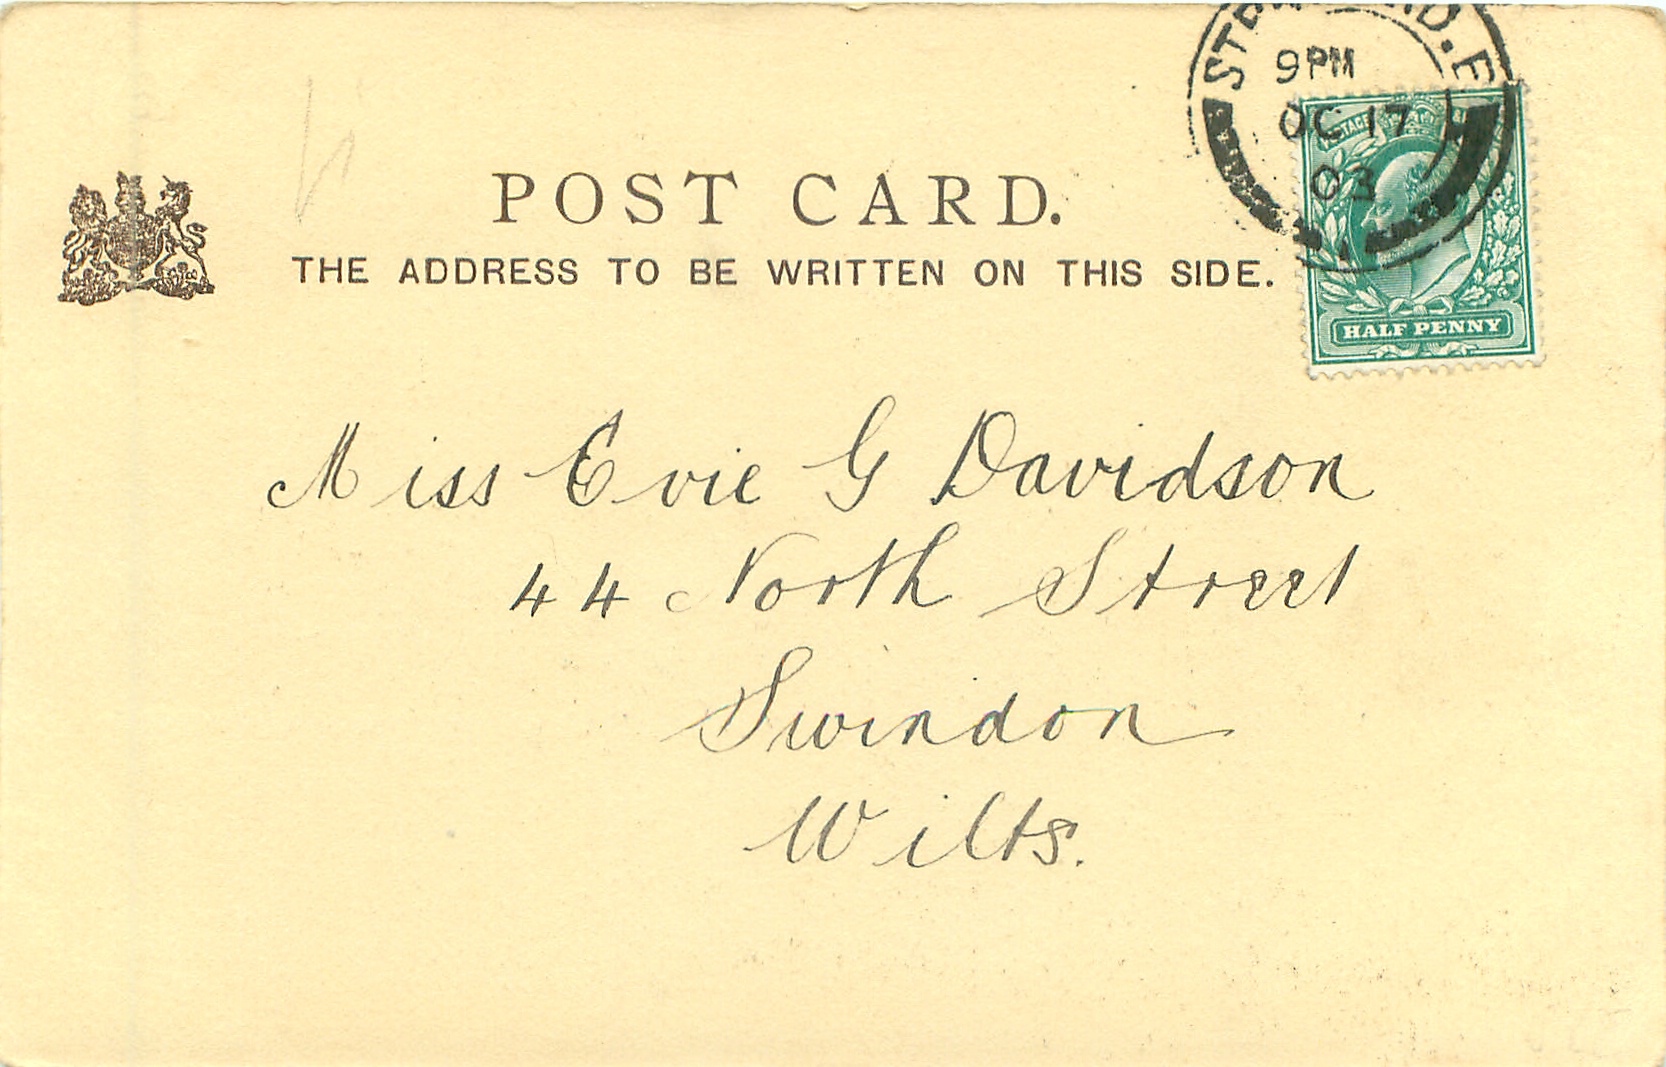 9PM
OC 17
03
POST CARD.
THE ADDRESS TO BE WRITTEN ON THIS SIDE.
POSTAGE
HALF PENNY
Miss Evie G Davidson
44 North Street
Swindon
Wilts.